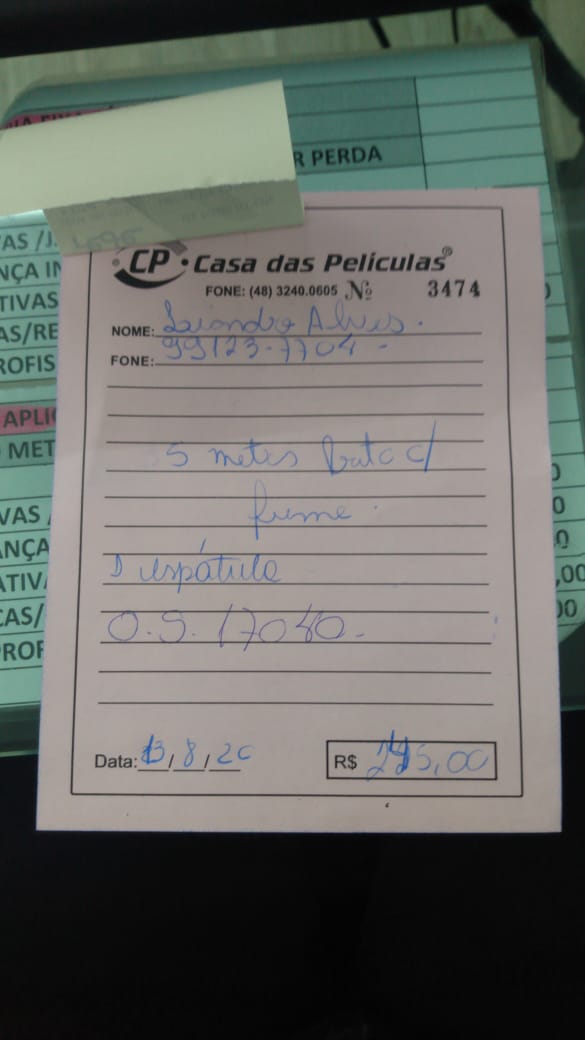 R PERDA
VAS /J
NÇA IN
TIVAS
AS/RE
ROFIS
APLI
MET
VAS
ANÇA
ATIV
CAS/
PROF
CP Casa das Películas®
FONE: (48) 3240.0605 Nº 3474
NOME: Leandro Alves.
FONE: 99123-7704 -
5 metes c/
fume.
1 espátula
O.S. 17040.
Data: 13/8/20 R$ 5,00